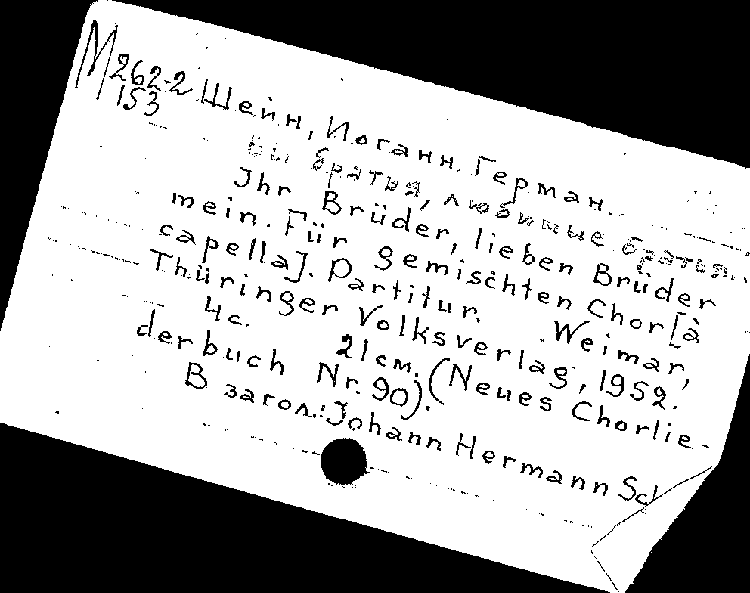 М 262-2
153
Шейн, Иоганн Герман.
Вы братья, любимые братья...
Jhr Brüder, lieben Brüder
mein. Für gemischten Chor [à
capella]. Partitur. Weimar,
Thüringer Volksverlag, 1952.
4 с. 21 см. (Neues Chorlie-
derbuch Nr. 90).
В загол.: Johann Hermann